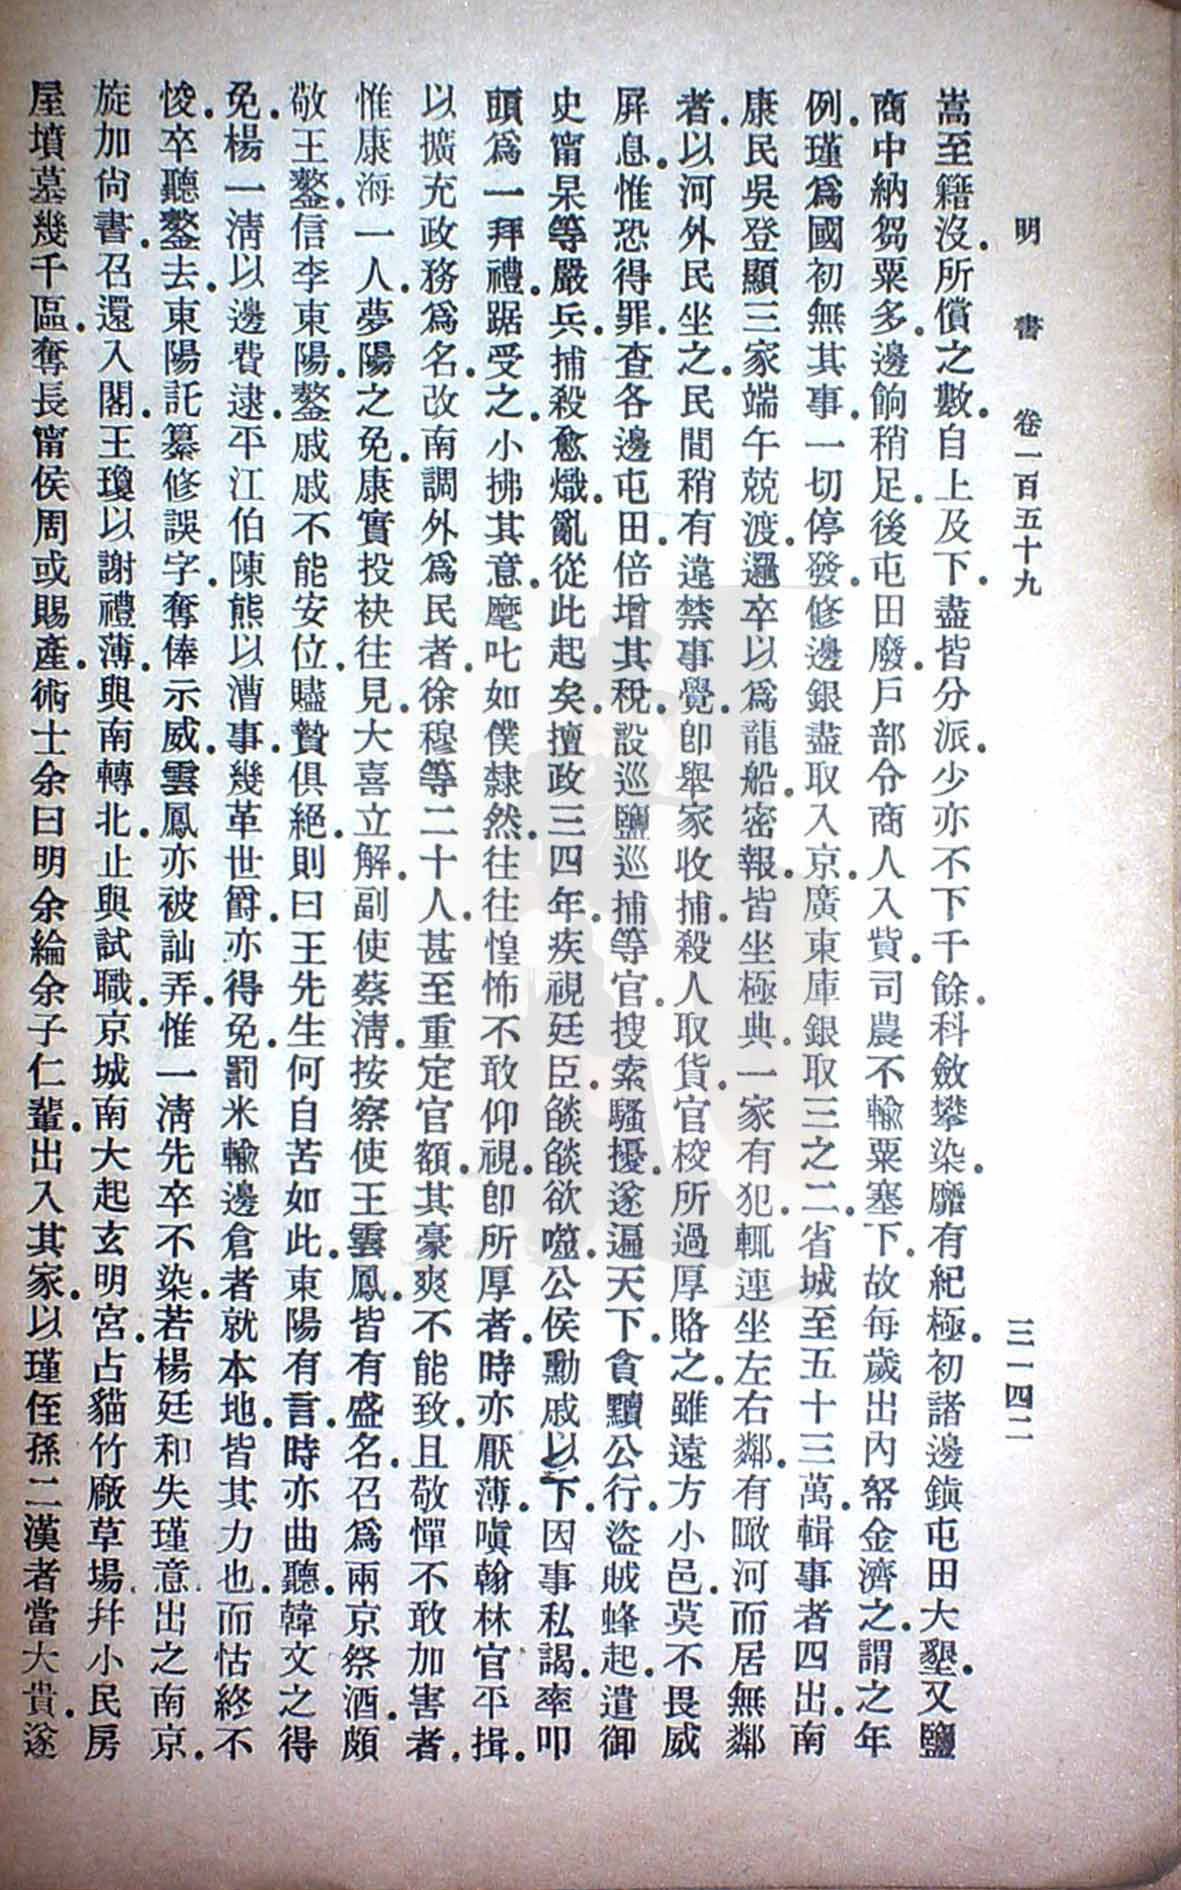 明書 卷一百五十九 三一四二
嵩至籍沒。所償之數。自上及下。盡皆分派。少亦不下千餘。科斂攀染。靡有紀極。初諸邊鎭屯田大墾。又鹽
商中納芻粟多。邊餉稍足。後屯田廢。戶部令商人入貲。司農不輸粟塞下。故每歲出內帑金濟之。謂之年
例。瑾爲國初無其事。一切停發。修邊銀盡取入京。廣東庫銀取三之二。省城至五十三萬。輯事者四出。南
康民吳登顯三家端午競渡。邏卒以爲龍船。密報。皆坐極典。一家有犯。輒連坐左右鄰。有瞰河而居無鄰
者。以河外民坐之。民間稍有違禁事覺。卽舉家收捕。殺人取貨。官校所過厚賂之。雖遠方小邑。莫不畏威
屛息。惟恐得罪。查各邊屯田。倍增其稅。設巡鹽巡捕等官。搜索騷擾。遂遍天下。貪黷公行。盜賊蜂起。遣御
史甯杲等嚴兵捕殺愈熾。亂從此起矣。擅政三四年。疾視廷臣。啖啖欲噬。公侯勳戚以下。因事私謁。率叩
頭爲一拜禮。踞受之。小拂其意。麾叱如僕隸然。往往惶怖不敢仰視。卽所厚者。時亦厭薄。嗔翰林官平揖。
以擴充政務爲名。改南調外爲民者。徐穆等二十人。甚至重定官額。其豪爽不能致。且敬憚不敢加害者。
惟康海一人。夢陽之免。康實投袂往見。大喜立解。副使蔡淸。按察使王雲鳳。皆有盛名。召爲兩京祭酒。頗
敬王鏊。信李東陽。鏊戚戚不能安位。贐贄俱絕。則曰王先生何自苦如此。東陽有言。時亦曲聽。韓文之得
免。楊一淸以邊費逮。平江伯陳熊以漕事。幾革世爵。亦得免。罰米輸邊倉者就本地。皆其力也。而怙終不
悛。卒聽鏊去。東陽託纂修誤字。奪俸示威。雲鳳亦被訕弄。惟一淸先卒不染。若楊廷和失瑾意。出之南京。
旋加尙書。召還入閣。王瓊以謝禮薄。與南轉北。止與試職。京城南大起玄明宮。占貓竹廠草場幷小民房
屋墳墓幾千區。奪長甯侯周或賜產。術士余曰明余綸余子仁輩。出入其家。以瑾侄孫二漢者當大貴。遂